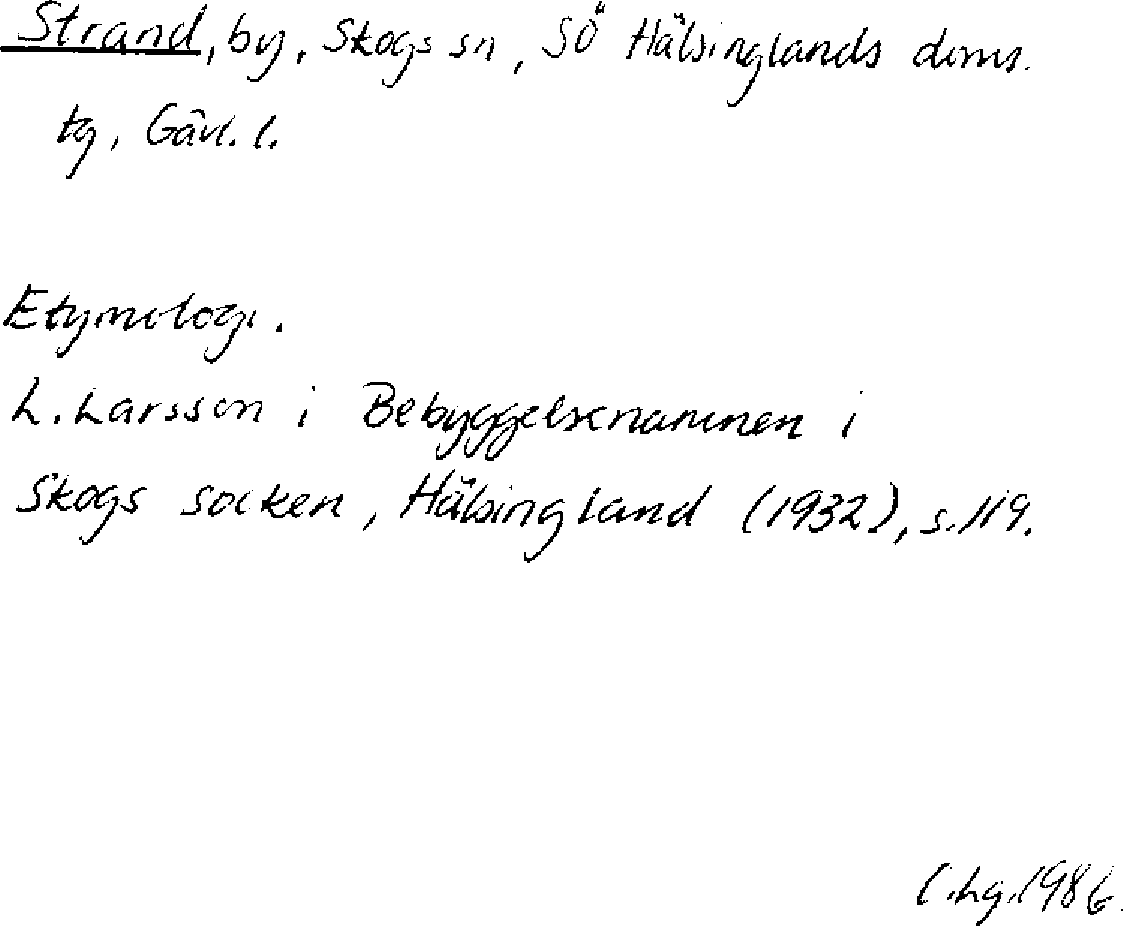 Strand, by, Skogs sn, SÖ Hälsinglands doms.
tg, Gävl. l.
Etymologi.
L. Larsson i Bebyggelsenamnen i
Skogs socken, Hälsingland (1932), s. 119.
C.Lg. 1986.